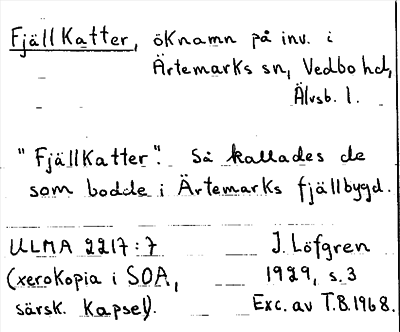 Fjällkatter, öknamn på inv. i
Ärtemarks sn, Vedbo hd,
Älvsb. l.
"Fjällkatter". Så kallades de
som bodde i Ärtemarks fjällbygd.
ULMA 2217:7 J. Löfgren
(xerokopia i SOA, 1929, s. 3
särsk. kapsel). Exc. av T.B. 1968.